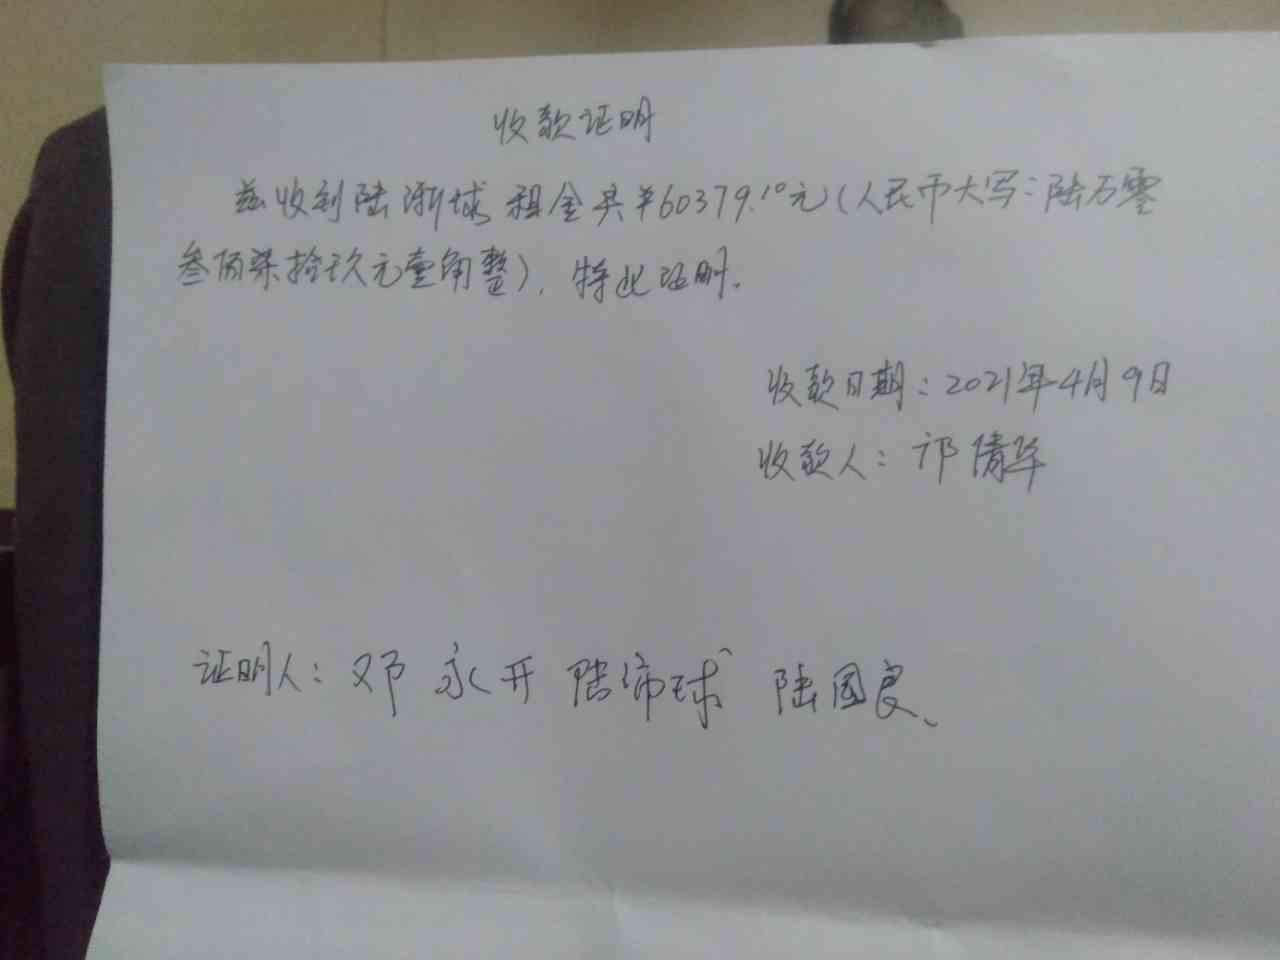 收款证明
兹收到陆渐球租金共￥60379.10元(人民币大写:陆万零
叁佰柒拾玖元壹角整),特此证明.
收款日期:2021年4月9日
收款人:邝清华
证明人:邓永开 陆沛球 陆国良、